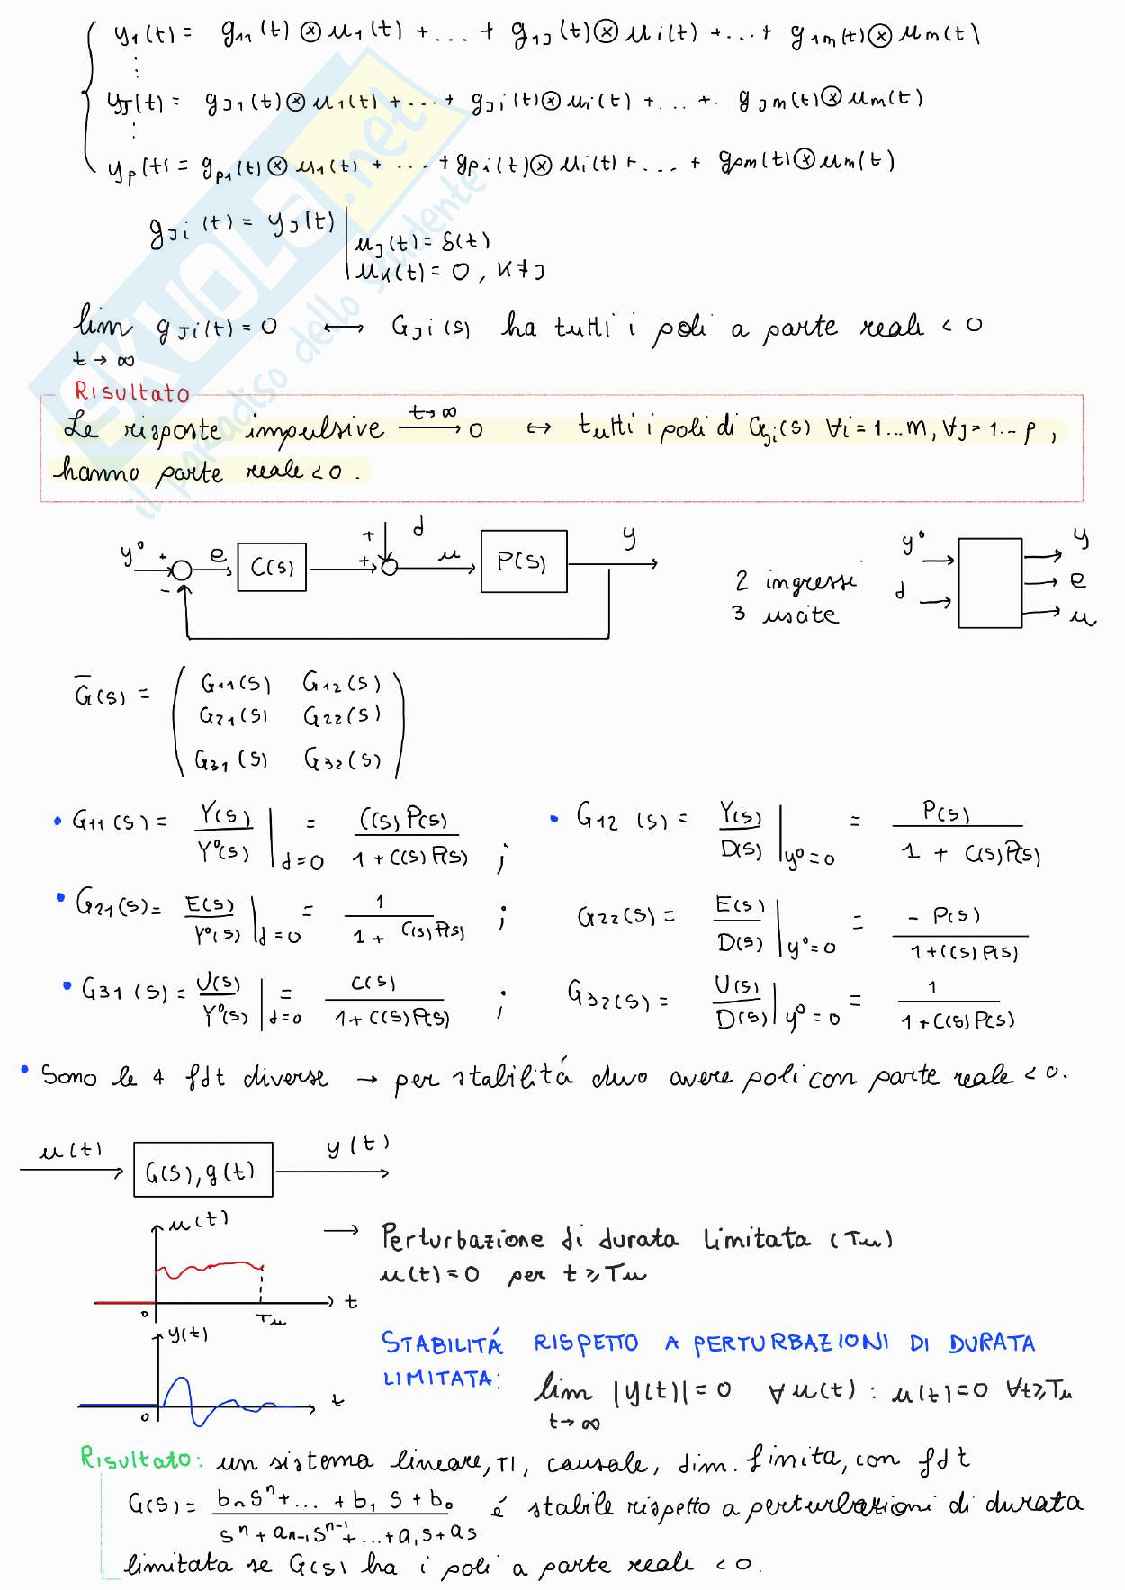 y₁(t) = g₁₁(t) ⊗ u₁(t) + ... + g₁ⱼ(t) ⊗ uᵢ(t) + ... + g₁ₘ(t) ⊗ uₘ(t)
⋮
yⱼ(t) = gⱼ₁(t) ⊗ u₁(t) + ... + gⱼᵢ(t) ⊗ uᵢ(t) + ... + gⱼₘ(t) ⊗ uₘ(t)
⋮
yₚ(t) = gₚ₁(t) ⊗ u₁(t) + ... + gₚᵢ(t) ⊗ uᵢ(t) + ... + gₚₘ(t) ⊗ uₘ(t)
gⱼᵢ(t) = yⱼ(t) | uⱼ(t) = δ(t)
uₖ(t) = 0, K ≠ J
lim gⱼᵢ(t) = 0 ↔ Gⱼᵢ(s) ha tutti i poli a parte reale < 0
t → ∞
Risultato
Le risposte impulsive t→∞ → 0 ↔ tutti i poli di Gⱼᵢ(s) ∀i = 1...m, ∀J = 1...p,
hanno parte reale < 0.
y° + - e C(s) + + d u P(s) y
2 ingressi
3 uscite
y° d y e u
G̅(s) = ( G₁₁(s) G₁₂(s)
G₂₁(s) G₂₂(s)
G₃₁(s) G₃₂(s) )
• G₁₁(s) = Y(s)/Y°(s) | d=0 = C(s)P(s)/(1 + C(s)P(s)) ; • G₁₂(s) = Y(s)/D(s) | y°=0 = P(s)/(1 + C(s)P(s))
• G₂₁(s) = E(s)/Y°(s) | d=0 = 1/(1 + C(s)P(s)) ; G₂₂(s) = E(s)/D(s) | y°=0 = -P(s)/(1+C(s)P(s))
• G₃₁(s) = U(s)/Y°(s) | d=0 = C(s)/(1+C(s)P(s)) ; G₃₂(s) = U(s)/D(s) | y°=0 = 1/(1+C(s)P(s))
• Sono le 4 fdt diverse → per stabilitá devo avere poli con parte reale < 0.
u(t) G(s), g(t) y(t)
u(t) 0 Tu t
→ Perturbazione di durata limitata (Tu)
u(t) = 0 per t ≥ Tu
y(t) 0 t
STABILITÁ RISPETTO A PERTURBAZIONI DI DURATA
LIMITATA: lim |y(t)| = 0 ∀ u(t) : u(t) = 0 ∀t ≥ Tu
t → ∞
Risultato: un sistema lineare, TI, causale, dim. finita, con fdt
G(s) = (bₙsⁿ + ... + b₁s + b₀)/(sⁿ + aₙ₋₁sⁿ⁻¹ + ... + a₁s + as) é stabile rispetto a perturbazioni di durata
limitata se G(s) ha i poli a parte reale < 0.
SKUOLA.net
il paradiso dello studente